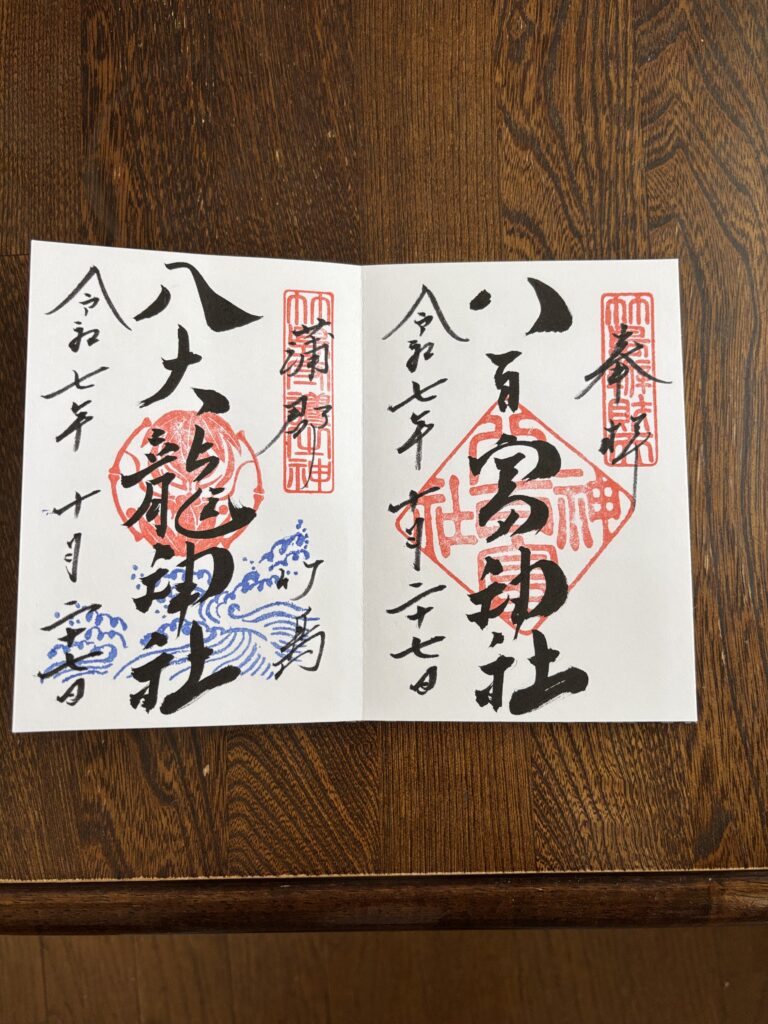 奉拝
八百富神社
八百富神社
令和七年十月二十七日
蒲郡
竹島
八大龍神社
令和七年十月二十七日